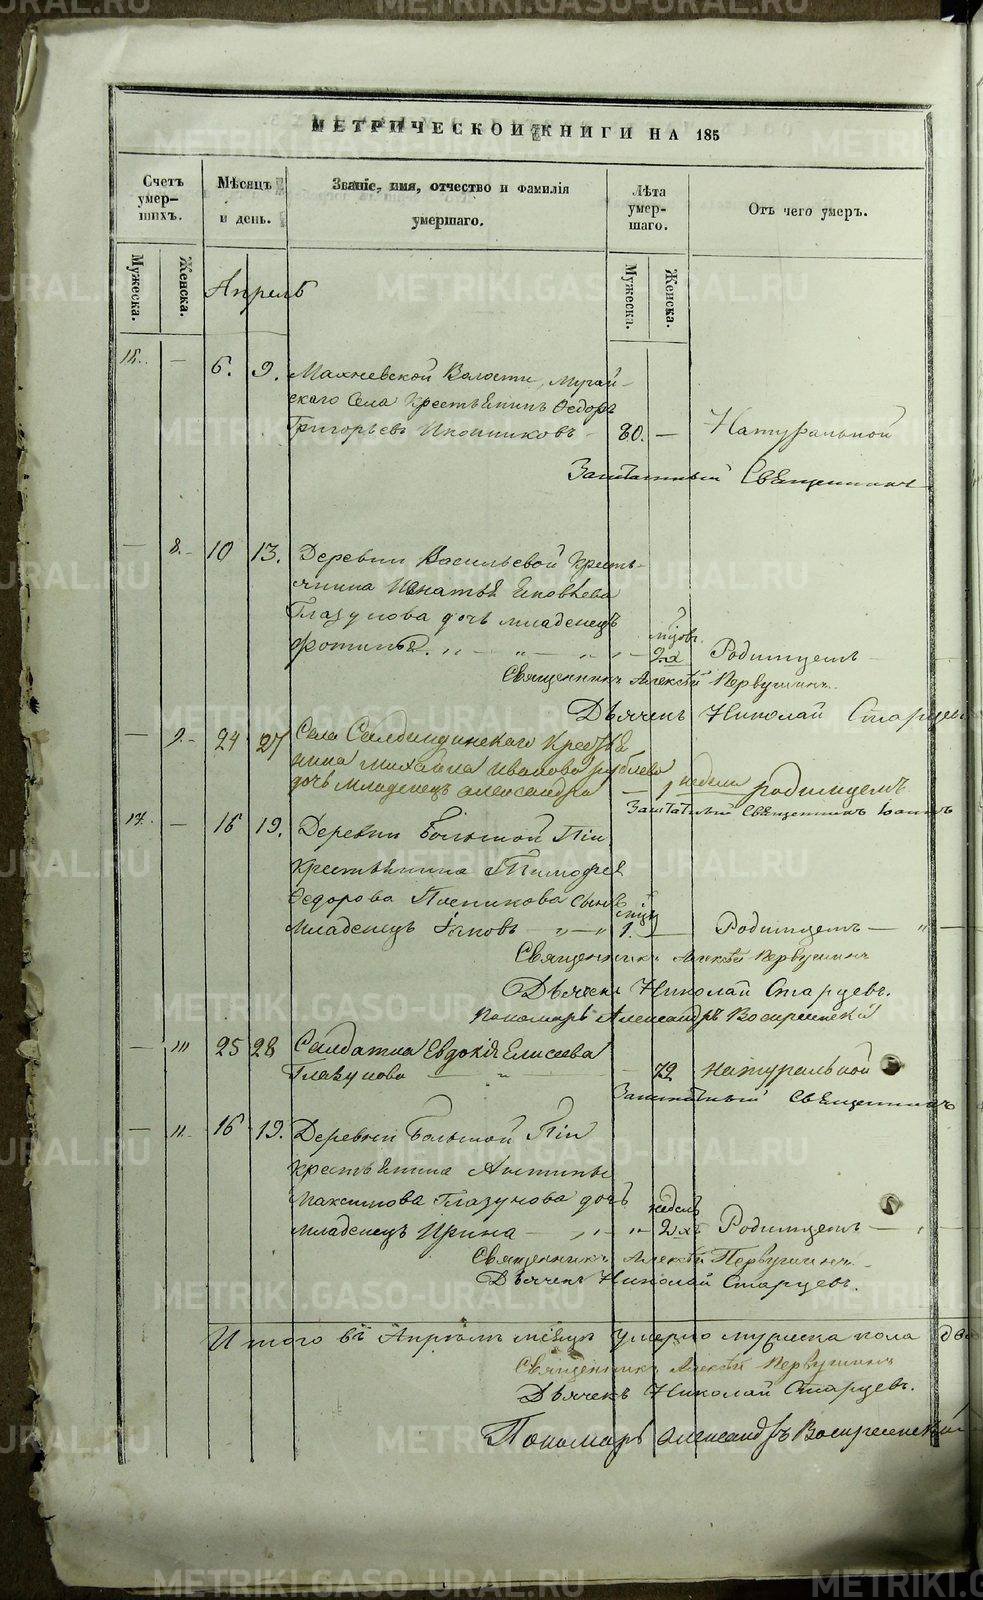 МЕТРИЧЕСКОЙ КНИГИ НА 185
Счетъ умер-шихъ.
Мѣсяцъ и день.
Званіе, имя, отчество и фамилія умершаго.
Лѣта умер-шаго.
Отъ чего умеръ.
Мужеска.
Женска.
Мужеска.
Женска.
Апрель
— 6. 9. Махневской Волости, Мугай-
скаго Села Крестьянинъ Ѳедоръ
Григорьевъ Иконниковъ — 80. — Натуральной
Заштатный Священникъ
— 8. 10 13. Деревни Васильевой Кресть-
янина Игнатья
Глазунова дочь младенецъ
Фотинья. 2хъ Родимцемъ
Священникъ Алексѣй Первушинъ.
Дьячекъ Николай Старцев
— 9. 24 27 Села Крестья
нина Михаила Иванова
дочь Младенецъ Александра — 1 недели родимцемъ
Заштатный Священникъ Іоаннъ
— 16 19. Деревни Большой
Крестьянина Тимофея
Ѳедорова сынъ
Младенецъ Іаковъ 1. — Родимцемъ —
Священникъ Алексѣй Первушинъ
Дьячекъ Николай Старцевъ.
Пономарь Александръ Воскресенскій
— 25 28 Салдатка Евдокія Елисеева
Глазунова 72 натуральной
Заштатный Священникъ
— 11. 16 19. Деревни Большой
Крестьянина Антипы
Максимова Глазунова дочь недель
младенецъ Ирина — 2хъ Родимцемъ —
Священникъ Алексѣй Первушинъ.
Дьячекъ Николай Старцевъ.
Итого въ Апрелѣ мѣсяцѣ умерло мужеска пола
Священникъ Алексѣй Первушинъ
Дьячекъ Николай Старцевъ.
Пономарь Александръ Воскресенскій
METRIKI.GASO-URAL.RU